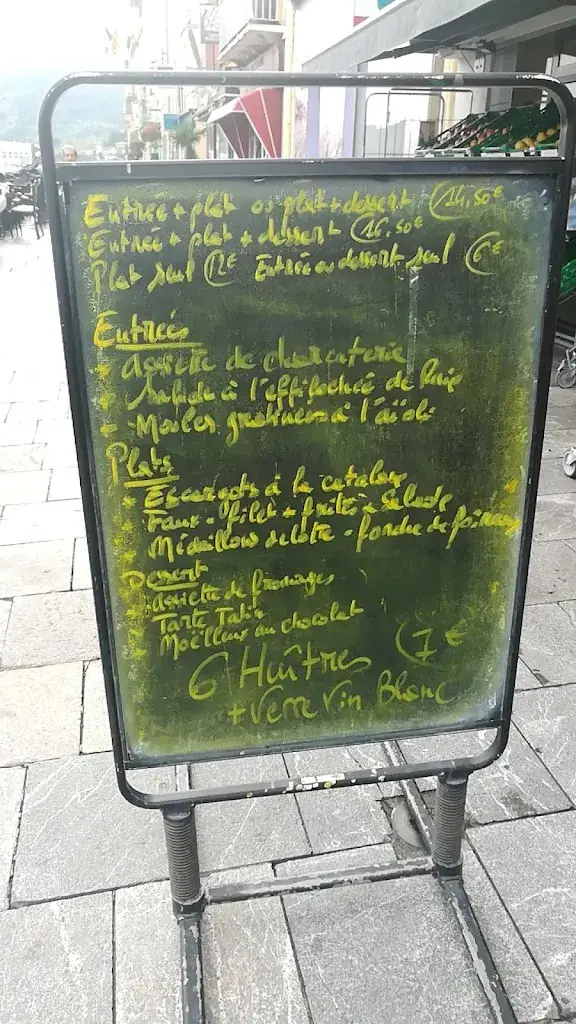 Entrée + plat ou plat + dessert 14.50€
Entrée + plat + dessert 16.50€
Plat seul 12€ Entrée ou dessert seul 6€
Entrées
* Assiette de charcuterie
* Salade à l'effilochée de Raie
* Moules gratinées à l'aïoli
Plats
* Escargots à la catalane
* Faux-filet + frites + Salade
* Médaillon de lotte - fondue de poireaux
Dessert
* Assiette de fromages
* Tarte Tatin
* Moëlleux au chocolat
6 Huîtres 7€
+ Verre Vin Blanc